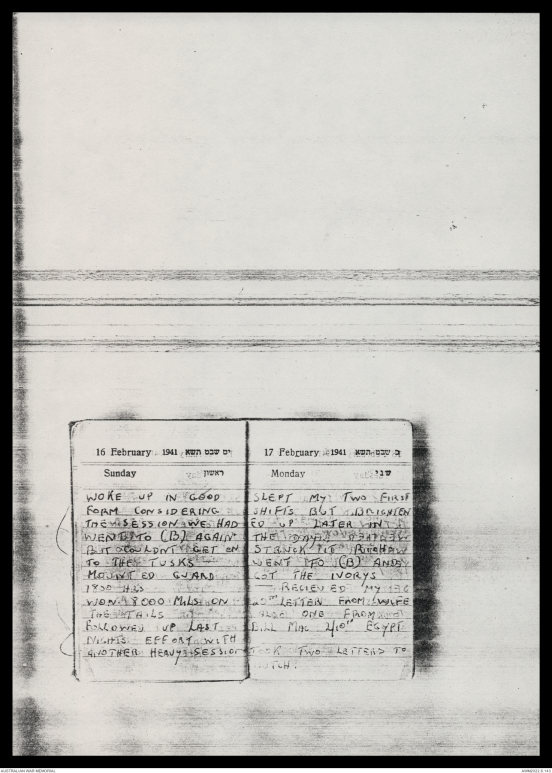 16 February 1941 יט שבט תשא
Sunday ראשון
WOKE UP IN GOOD
FORM CONSIDERING
THE SESSION WE HAD
WENT TO (B) AGAIN
BUT COULDN'T GET ON
TO THE TUSKS
MOUNTED GUARD
1830 HRS
WON 8000 MILS ON
THE TAILS
FOLLOWED UP LAST
NIGHTS EFFORT WITH
ANOTHER HEAVY SESSION
17 February 1941 כ שבט תשא
Monday שני
SLEPT MY TWO FIRST
SHIFTS BUT BRIGHTEN
ED UP LATER IN
THE DAY
STRUCK IT
WENT TO (B) AND
GOT THE IVORYS
RECIEVED MY
LETTER FROM WIFE
ALSO ONE FROM
BILL MAC EGYPT
TOOK TWO LETTERS TO
AUSTRALIAN WAR MEMORIAL